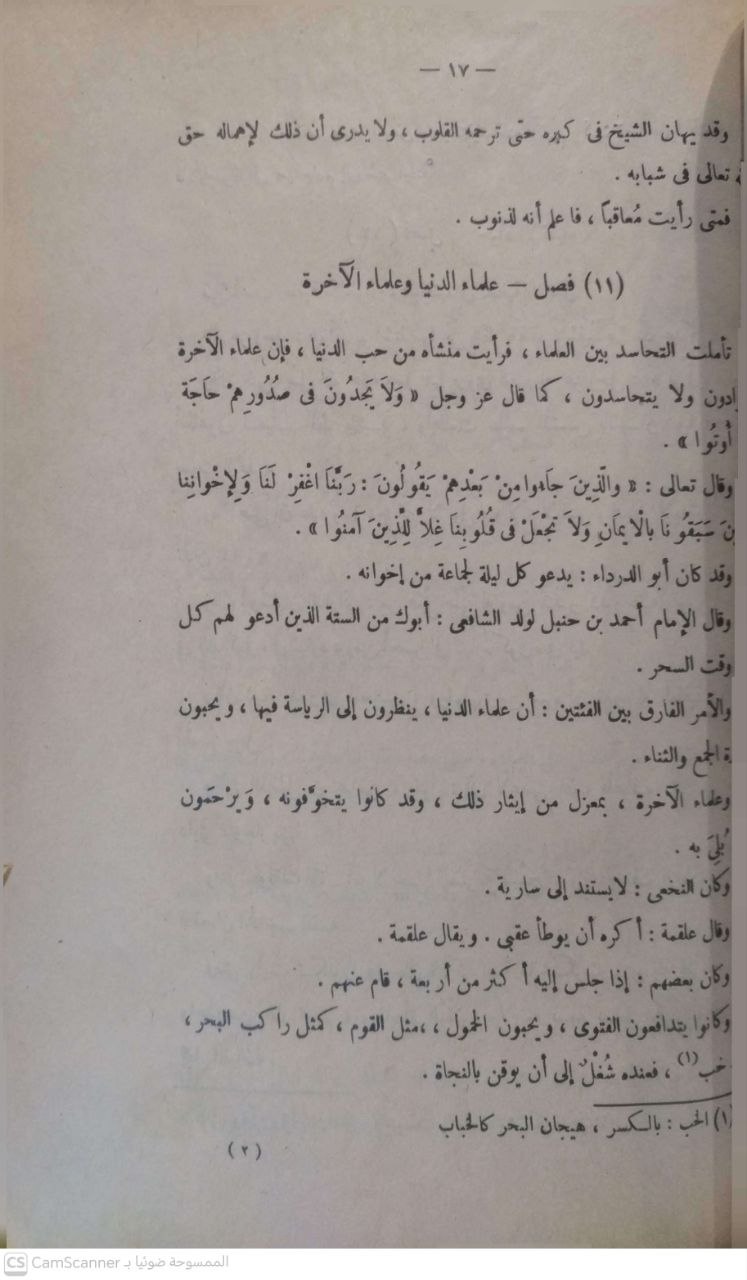 — ١٧ —
وقد يهان الشيخ فى كبره حتى ترحمه القلوب ، ولا يدرى أن ذلك لإهماله حق
تعالى فى شبابه .
فمتى رأيت مُعاقباً ، فاعلم أنه لذنوب .
(١١) فصل — علماء الدنيا وعلماء الآخرة
تأملت التحاسد بين العلماء ، فرأيت منشأه من حب الدنيا ، فإن علماء الآخرة
ادون ولا يتحاسدون ، كما قال عز وجل « وَلاَ يَجِدُونَ فى صُدُورِهِمْ حَاجَة
أُوتُوا » .
وقال تعالى : « والَّذِينَ جَاءوا مِنْ بَعْدِهِمْ يَقُولُونَ : رَبَّنَا اغْفِرْ لَنَا وَلِإخْوانِنا
نَ سَبَقُونَا بالْايمَانِ وَلاَ تَجْعَلْ فى قُلُوبِنَا غِلاًّ لِلَّذِينَ آمَنُوا » .
وقد كان أبو الدرداء : يدعو كل ليلة لجماعة من إخوانه .
وقال الإمام أحمد بن حنبل لولد الشافعى : أبوك من الستة الذين أدعو لهم كل
وقت السحر .
والأمر الفارق بين الفئتين : أن علماء الدنيا ، ينظرون إلى الرياسة فيها ، ويحبون
ة الجمع والثناء .
وعلماء الآخرة ، بمعزل من إيثار ذلك ، وقد كانوا يتخوَّفونه ، وَيرْحَمون
بُلِىَ به .
وكان النخعى : لا يستند إلى سارية .
وقال علقمة : أكره أن يوطأ عقبى . ويقال علقمة .
وكان بعضهم : إذا جلس إليه أكثر من أربعة ، قام عنهم .
وكانوا يتدافعون الفتوى ، ويحبون الخمول ، ،مثل القوم ، كمثل راكب البحر ،
خب(١) ، فعنده شُغْلٌ إلى أن يوقن بالنجاة .
(١) الخب : بالكسر ، هيجان البحر كالخباب
(٢)
CS CamScanner الممسوحة ضوئيا بـ